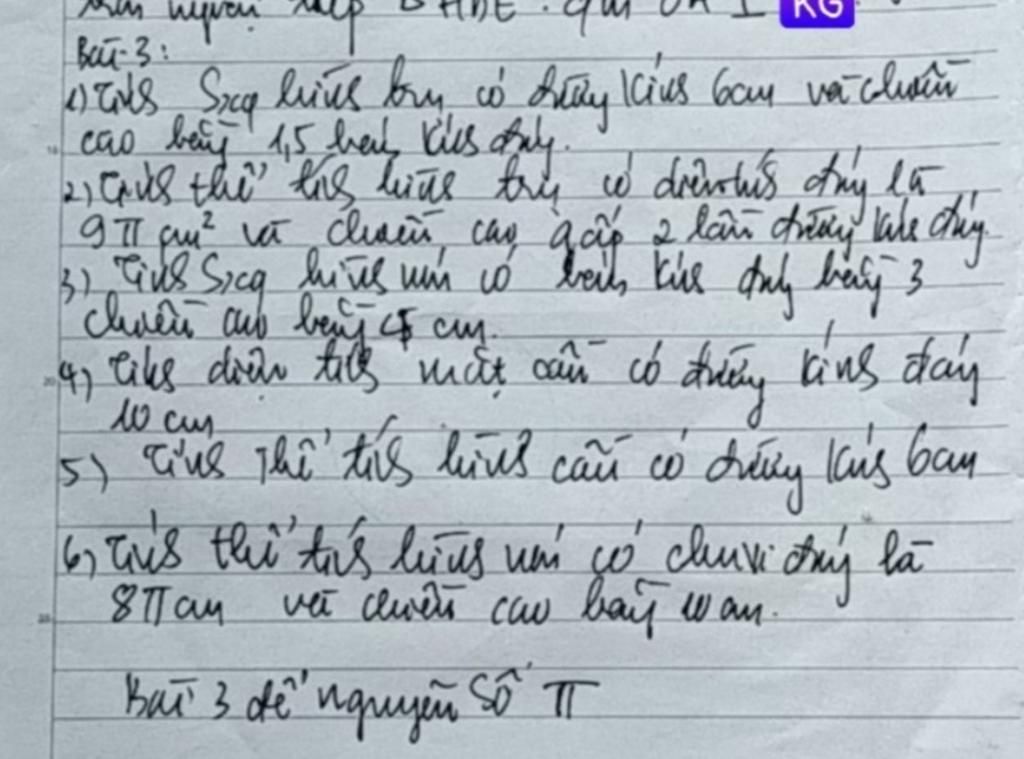 tiếp ABDE. KG
Bài 3:
1) Tính Sxq hình trụ có đường kính 6cm và chiều
cao bằng 1,5 bán kính đáy.
2) Tính thể tích hình trụ có diện tích đáy là
9π cm² và chiều cao gấp 2 lần đường kính đáy.
3) Tính Sxq hình nón có bán kính đáy bằng 3
chiều cao bằng cm.
4) Tính diện tích mặt cầu có đường kính đáy
10 cm
5) Tính Thể tích hình cầu có đường kính 6cm
6) Tính thể tích hình nón có chu vi đáy là
8π cm và chiều cao bằng 10 cm.
Bài 3 để nguyên số π